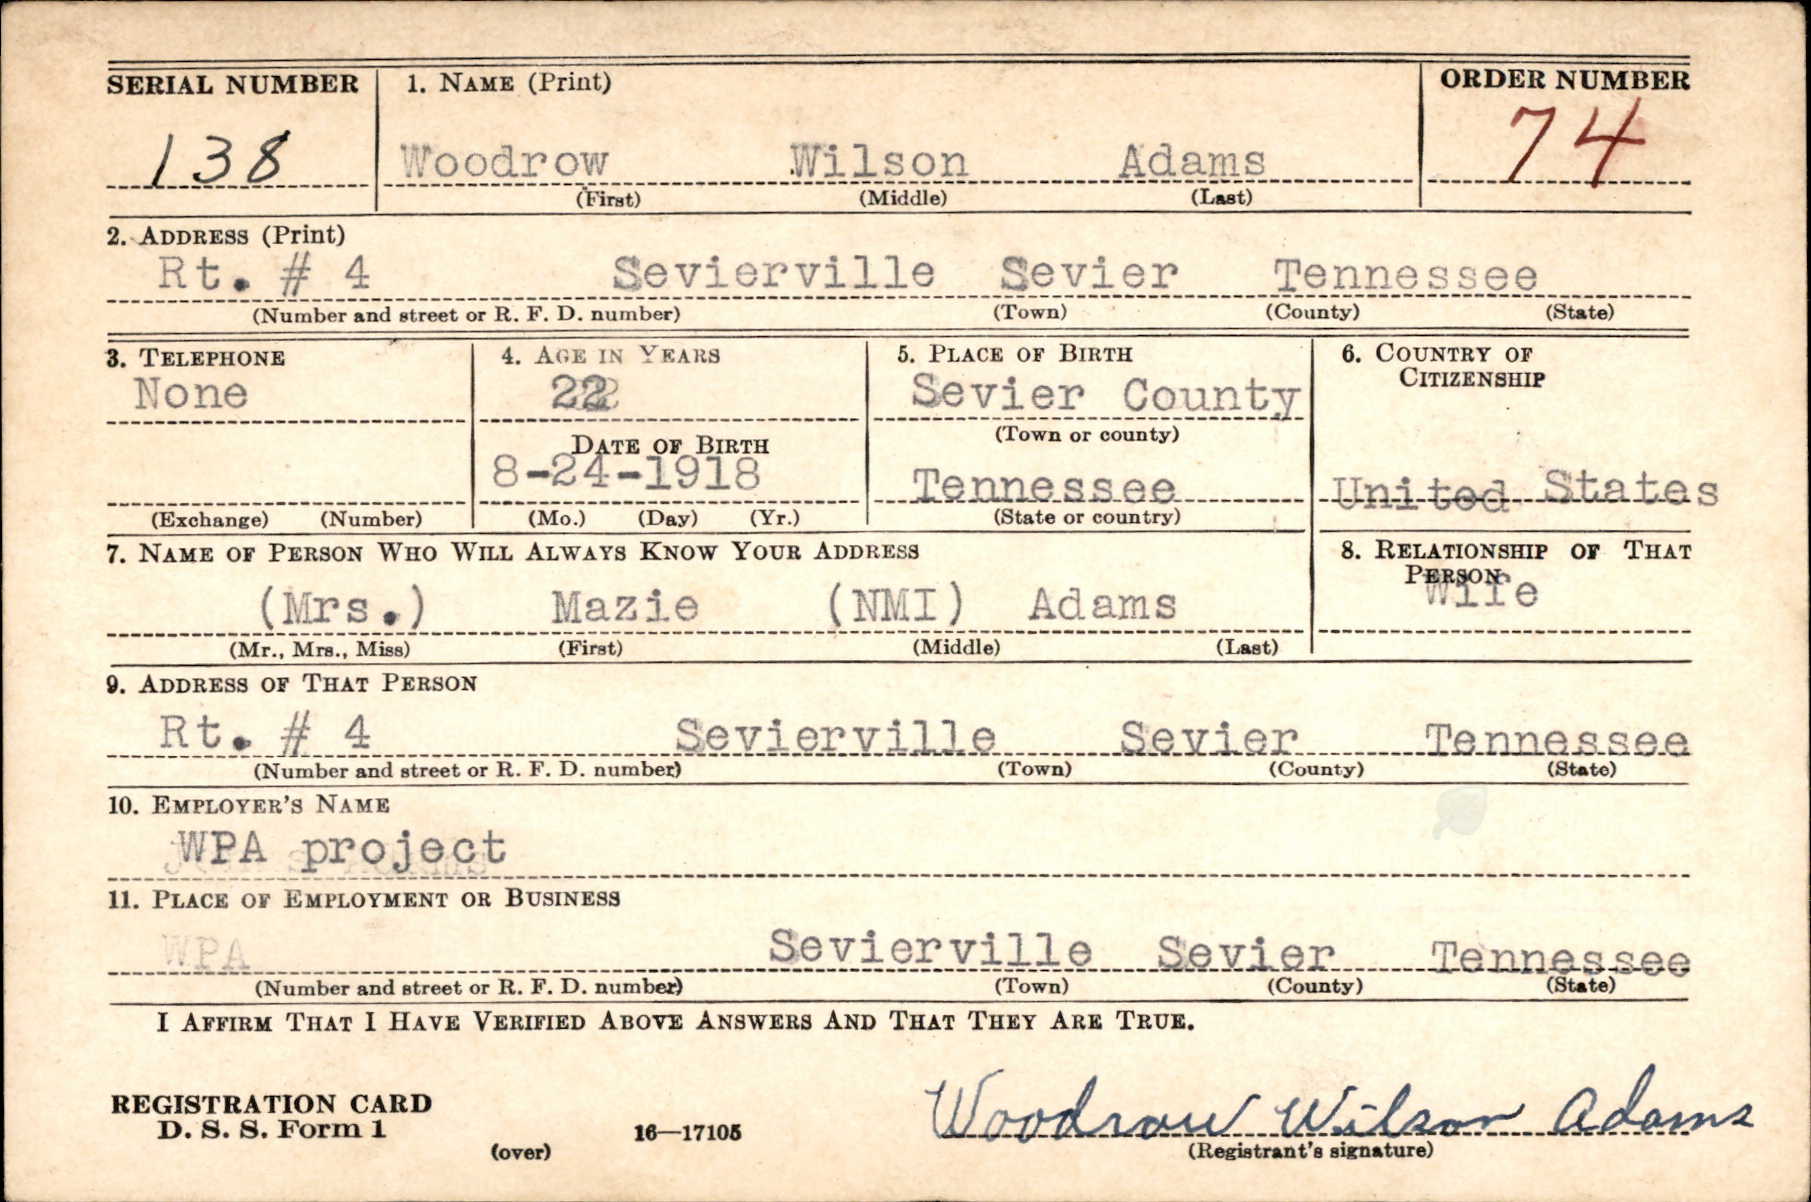 SERIAL NUMBER 1. NAME (Print) ORDER NUMBER
138 Woodrow Wilson Adams 74
(First) (Middle) (Last)
2. ADDRESS (Print)
Rt. # 4 Sevierville Sevier Tennessee
(Number and street or R. F. D. number) (Town) (County) (State)
3. TELEPHONE 4. AGE IN YEARS 5. PLACE OF BIRTH 6. COUNTRY OF
CITIZENSHIP
None 22 Sevier County
(Town or county)
DATE OF BIRTH
8-24-1918 Tennessee United States
(Exchange) (Number) (Mo.) (Day) (Yr.) (State or country)
7. NAME OF PERSON WHO WILL ALWAYS KNOW YOUR ADDRESS 8. RELATIONSHIP OF THAT
PERSON
(Mrs.) Mazie (NMI) Adams Wife
(Mr., Mrs., Miss) (First) (Middle) (Last)
9. ADDRESS OF THAT PERSON
Rt. # 4 Sevierville Sevier Tennessee
(Number and street or R. F. D. number) (Town) (County) (State)
10. EMPLOYER'S NAME
WPA project
11. PLACE OF EMPLOYMENT OR BUSINESS
WPA Sevierville Sevier Tennessee
(Number and street or R. F. D. number) (Town) (County) (State)
I AFFIRM THAT I HAVE VERIFIED ABOVE ANSWERS AND THAT THEY ARE TRUE.
REGISTRATION CARD
D. S. S. Form 1
(over) 16—17105
Woodrow Wilson Adams
(Registrant's signature)